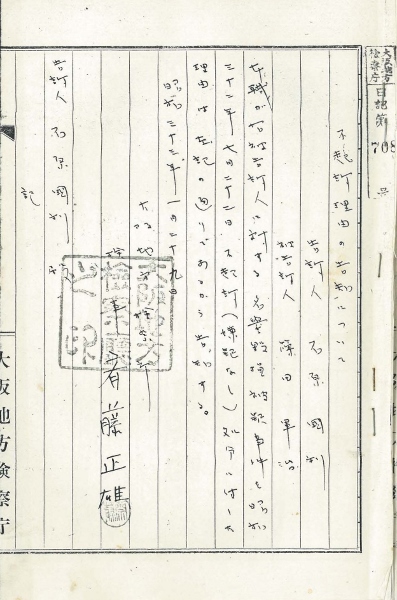 大阪地方
検察庁
日記第
708
号
不起訴理由の告知について
告訴人 石原國利
被告訴人 篠田軍治
本職が右被告訴人に対する名誉毀損被疑事件を昭和
三十二年七月二十二日不起訴(嫌疑なし)処分に付した
理由は左記の通りであるから告知する。
昭和三十三年一月二十九日
大阪地方検察庁
検事 有藤正雄
記
告訴人石原國利
大阪地方検察庁